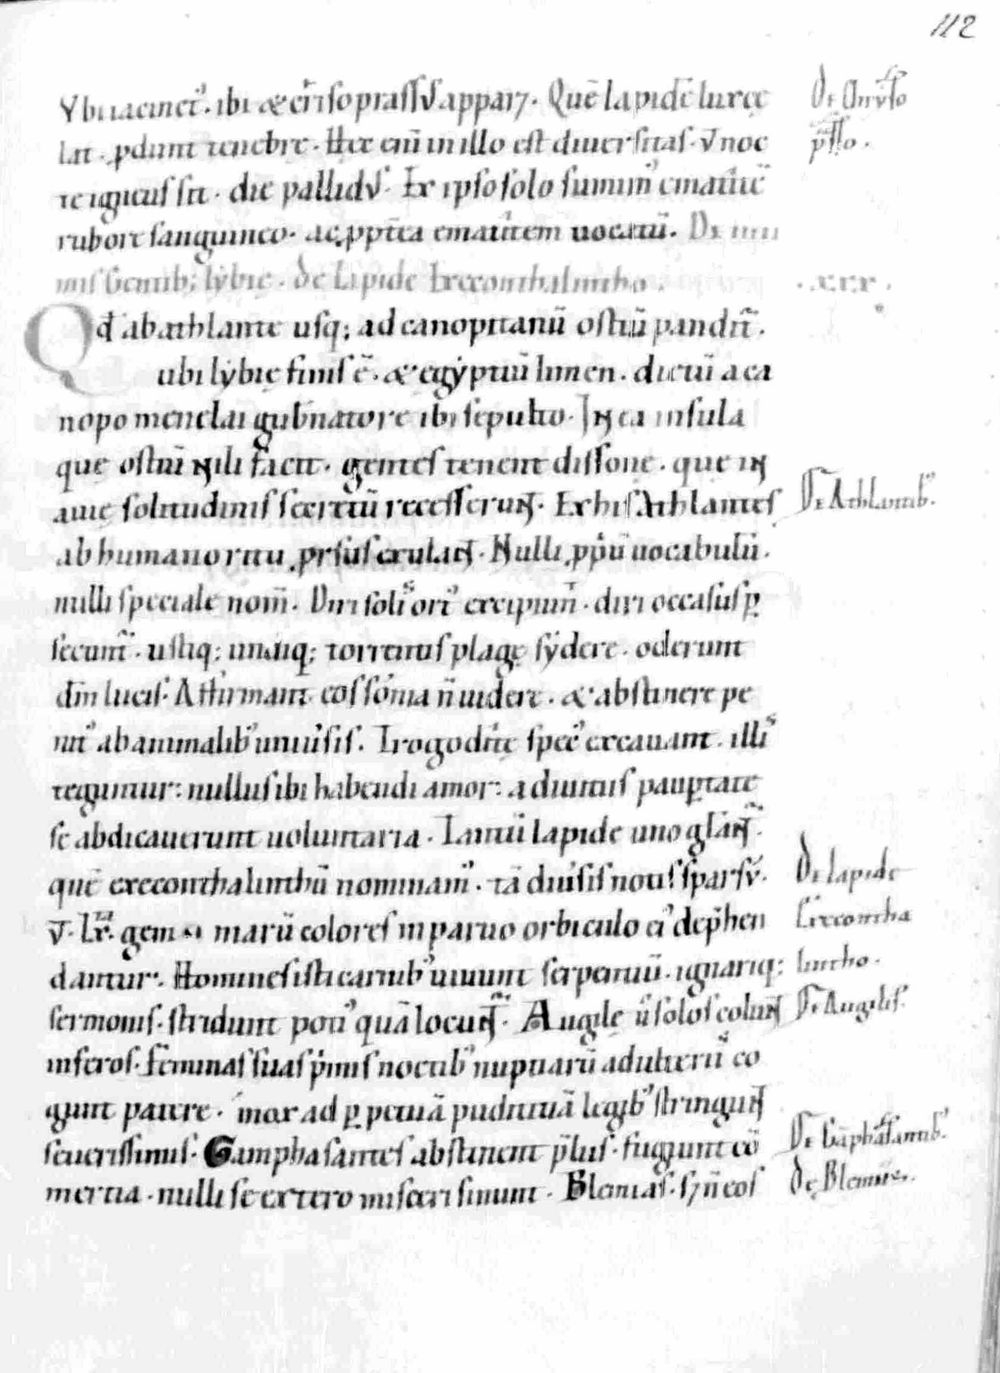 112
Vbi iacinct᾽. ibi & crisoprassv̄s appar&. Quē lapidē lux cę
lat. ꝓdunt tenebrę. Hęc eni in illo est diuersitas. ṽ noc
te igneus sit. die pallidus. Ex ipso solo sumim᾽ ematitē
rubore sanguineo. ac ꝓpt̄ea ematitem uocatū. De
mis Gentib; lybię. de Lapide Execonthalintho.
.xxx.
Qd̄ ab athlante usq; ad canopitanū ostiū pandit᾽.
ubi lẏbię finis ē. & egẏptiū limen. dictū a ca
nopo menelai gub̄natore ibi sepulto. In ea insula
quę ostiū Nili facit. gentes tenent dissonę. quę in
auię solitudinis secretū recesserunt. Ex his Athlantes
ab humano ritu ꝓrsus exulant. Nulli ꝓp̄ū uocabulū.
nulli speciale nom̄. Diri solis ort᾽ excipiunt᾽. diri occasus ꝓ
secunt᾽. ustiq; undiq; torrentis plagę sẏdere. oderunt
dm̄ lucis. Affirmant eos sōnia n̄ uidere. & abstinere pe
nit᾽ ab animalib᾽ uniuersis. Trogoditę spec᾽ excauant. illis
teguntur: nullus ibi habendi amor: a diuitiis pauꝑtate
se abdicauerunt uoluntaria. Tantū lapide uno glāntᷣ.
quē execonthalinthū nominam᾽. tā diuisis notis sparsū.
v̄. Lx. gem marū colores in paruo orbiculo ei᾽ dep̄hen
dantur. Homines isti carnib᾽ uiuunt serpentiū. ignariq;
sermonis. stridunt poti᾽ quā locuntᷣ. Augilę u᾽ solos colunt
inferos. feminas suas pͥmis noctib᾽ nuptiarū adulteriis co
gunt patere. mox ad ꝑpetuā pudicitiā legib᾽ stringunt
seuerissimis. Gamphasantes abstinent p̄liis. fugiunt cō
mertia. nulli se extero misceri sinunt. Blemias. s& n̄ eos
De Crisso
passo.
De Athlantib᾽.
De lapide
Execontha
lintho.
De Augilis.
De Gāphasantib᾽.
De Blemiis.